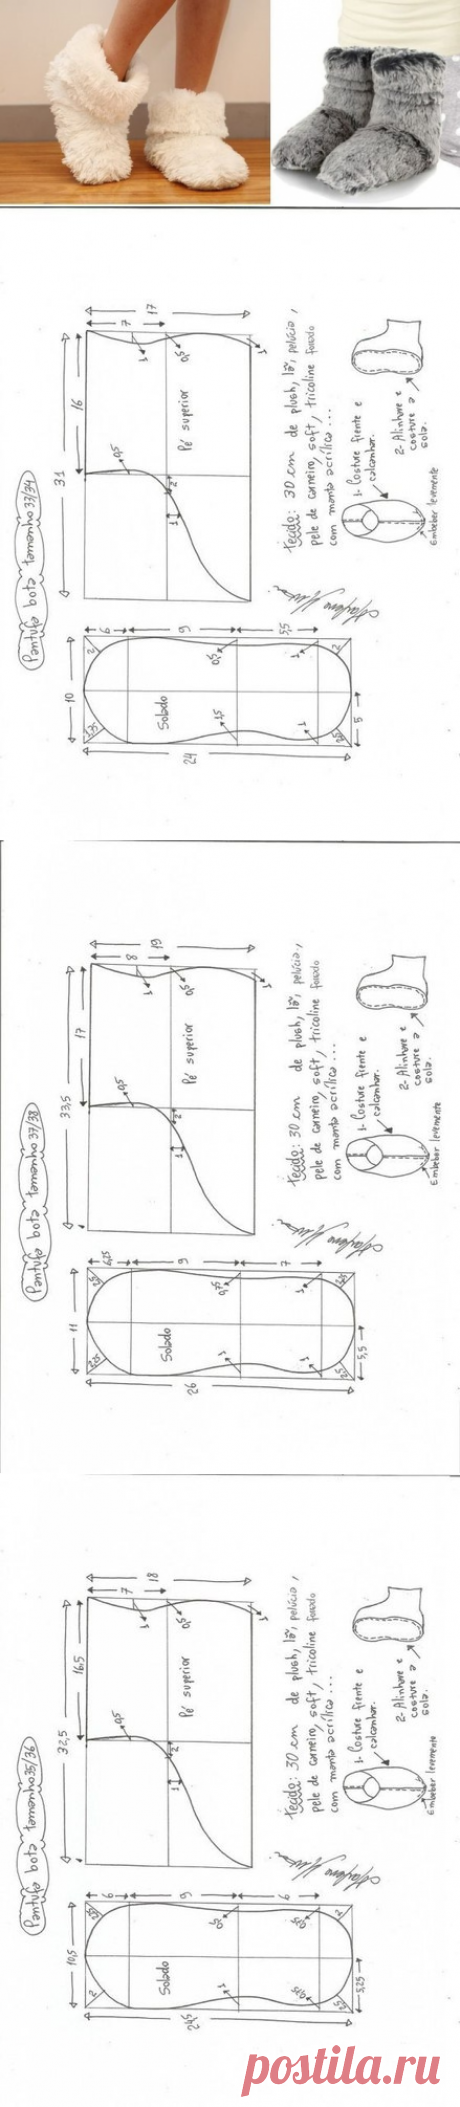 Pantufa bota tamanho 33/34
31
16
17
7
0,5
1
0,5
1
Pé superior
2
1
Tecido: 30 cm de plush, lã, pelúcia,
pele de carneiro, soft, tricoline forrado
com manta acrílica...
1- Costure frente e
calcanhar.
2- Alinhave e
costure a
sola.
Embeber levemente
10
6
9
5,5
2
0,5
1
2
Solado
1,5
1
2,5
5
24
Pantufa bota tamanho 37/38
33,5
17
19
8
0,5
1
0,5
1
Pé superior
2
1
Tecido: 30 cm de plush, lã, pelúcia,
pele de carneiro, soft, tricoline forrado
com manta acrílica...
1- Costure frente e
calcanhar.
2- Alinhave e
costure a
sola.
Embeber levemente
11
6,25
9
7
2,5
0,75
1
2,25
2,25
Solado
1
1
2,5
5,5
26
Pantufa bota tamanho 35/36
32,5
16,5
18
7
0,5
1
0,5
1
Pé superior
2
1
Tecido: 30 cm de plush, lã, pelúcia,
pele de carneiro, soft, tricoline forrado
com manta acrílica...
1- Costure frente e
calcanhar.
2- Alinhave e
costure a
sola.
Embeber levemente
10,5
6
9
6
2
Solado
1
2,5
5,25
postila.ru